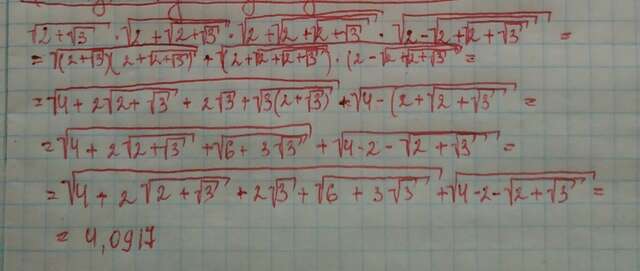 √2+√3 · √2+√2+√3 · √2+√2+√2+√3 · √2-√2+√2+√3 =
= √(2+√3)(2+√2+√3) + √(2+√2+√2+√3) · (2-√2+√2+√3 =
= √4+2√2+√3 + 2√3 + √3(2+√3) + √4-(2+√2+√3 =
= √4+2√2+√3 + √6+3√3 + √4-2-√2+√3 =
= √4+2√2+√3 + 2√3 + √6+3√3 + √4-2-√2+√3 =
= 4,0917